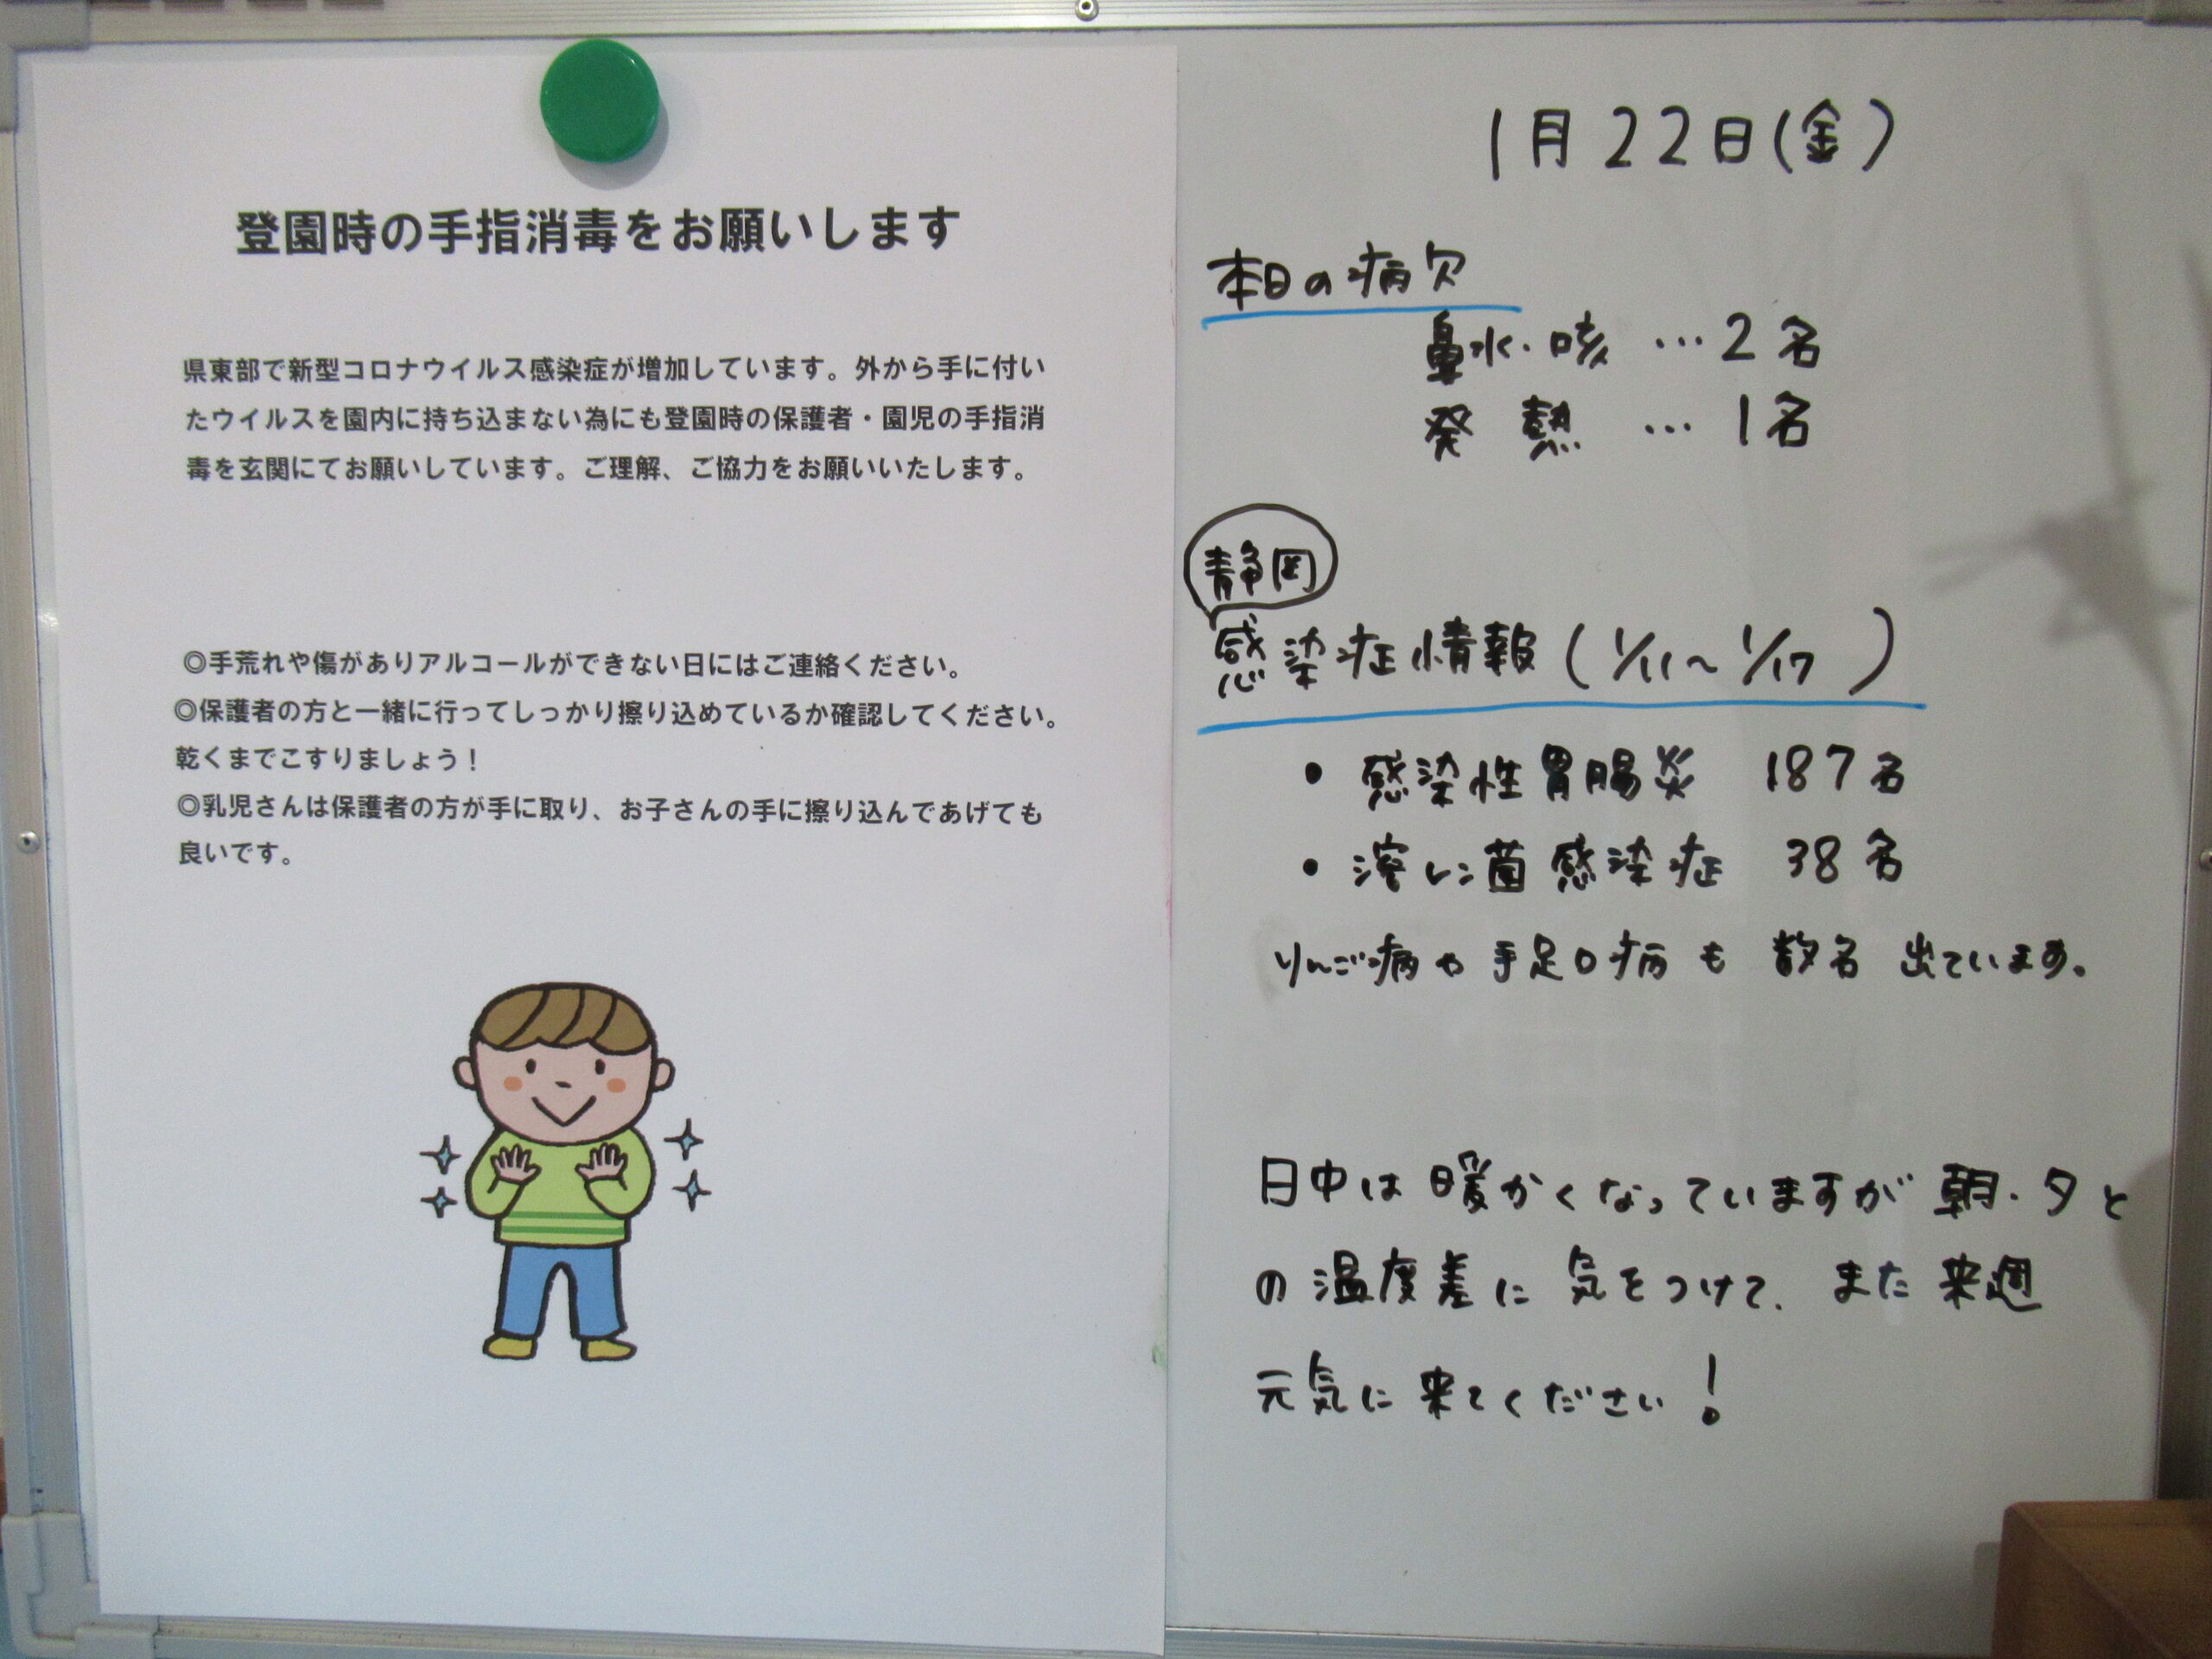 登園時の手指消毒をお願いします
県東部で新型コロナウイルス感染症が増加しています。外から手に付い
たウイルスを園内に持ち込まない為にも登園時の保護者・園児の手指消
毒を玄関にてお願いしています。ご理解、ご協力をお願いいたします。
◎手荒れや傷がありアルコールができない日にはご連絡ください。
◎保護者の方と一緒に行ってしっかり擦り込めているか確認してください。
乾くまでこすりましょう！
◎乳児さんは保護者の方が手に取り、お子さんの手に擦り込んであげても
良いです。
1月22日(金)
本日の病欠
鼻水・咳 …2名
発熱 … 1名
静岡
感染症情報(1/11～1/17)
・感染性胃腸炎 187名
・溶レン菌感染症 38名
りんご病や手足口病も数名出ています。
日中は暖かくなっていますが朝・夕と
の温度差に気をつけて、また来週
元気に来てください！